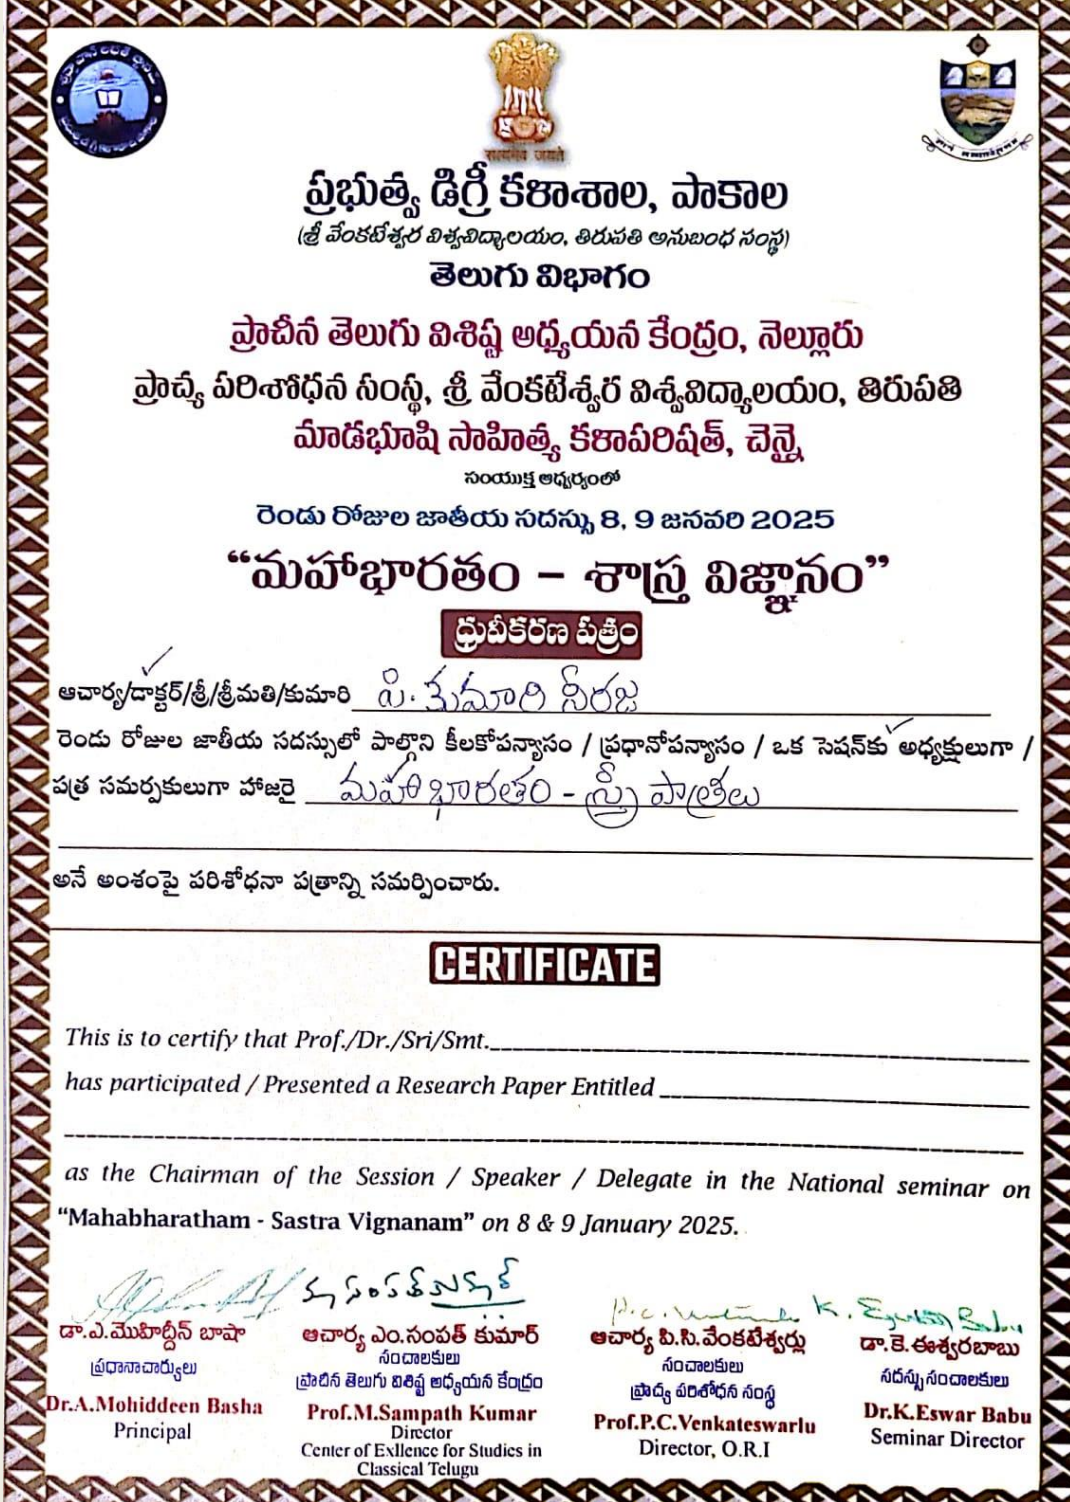 सत्यमेव जयते
ప్రభుత్వ డిగ్రీ కళాశాల, పాకాల
(శ్రీ వేంకటేశ్వర విశ్వవిద్యాలయం, తిరుపతి అనుబంధ సంస్థ)
తెలుగు విభాగం
ప్రాచీన తెలుగు విశిష్ట అధ్యయన కేంద్రం, నెల్లూరు
ప్రాచ్య పరిశోధన సంస్థ, శ్రీ వేంకటేశ్వర విశ్వవిద్యాలయం, తిరుపతి
మాడభూషి సాహిత్య కళాపరిషత్, చెన్నై
సంయుక్త ఆధ్వర్యంలో
రెండు రోజుల జాతీయ సదస్సు 8, 9 జనవరి 2025
“మహాభారతం – శాస్త్ర విజ్ఞానం”
ధ్రువీకరణ పత్రం
ఆచార్య/డాక్టర్/శ్రీ/శ్రీమతి/కుమారి పి. కుమారి నీరజ
రెండు రోజుల జాతీయ సదస్సులో పాల్గొని కీలకోపన్యాసం / ప్రధానోపన్యాసం / ఒక సెషన్‌కు అధ్యక్షులుగా /
పత్ర సమర్పకులుగా హాజరై మహాభారతం - స్త్రీ పాత్రలు
అనే అంశంపై పరిశోధనా పత్రాన్ని సమర్పించారు.
CERTIFICATE
This is to certify that Prof./Dr./Sri/Smt.
has participated / Presented a Research Paper Entitled
as the Chairman of the Session / Speaker / Delegate in the National seminar on
“Mahabharatham - Sastra Vignanam” on 8 & 9 January 2025.
మ సంపత్ కుమార్
K. Eswar Babu
డా.ఎ.మొహిద్దీన్ బాషా
ప్రధానాచార్యులు
Dr.A.Mohiddeen Basha
Principal
ఆచార్య ఎం.సంపత్ కుమార్
సంచాలకులు
ప్రాచీన తెలుగు విశిష్ట అధ్యయన కేంద్రం
Prof.M.Sampath Kumar
Director
Center of Exllence for Studies in
Classical Telugu
ఆచార్య పి.సి.వేంకటేశ్వర్లు
సంచాలకులు
ప్రాచ్య పరిశోధన సంస్థ
Prof.P.C.Venkateswarlu
Director, O.R.I
డా.కె.ఈశ్వరబాబు
సదస్సు సంచాలకులు
Dr.K.Eswar Babu
Seminar Director